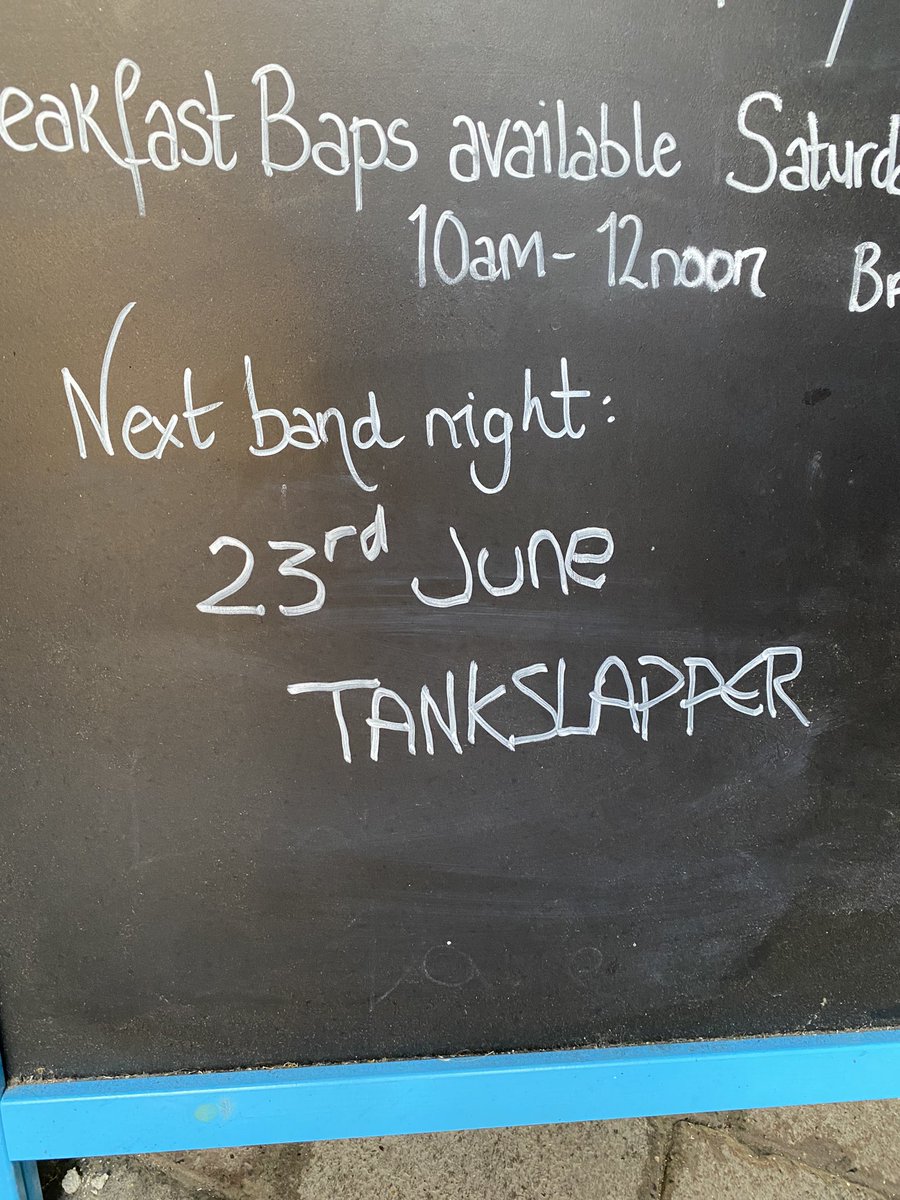 eakfast Baps available Saturda
10am - 12noon
Next band night:
23rd June
TANKSLAPPER